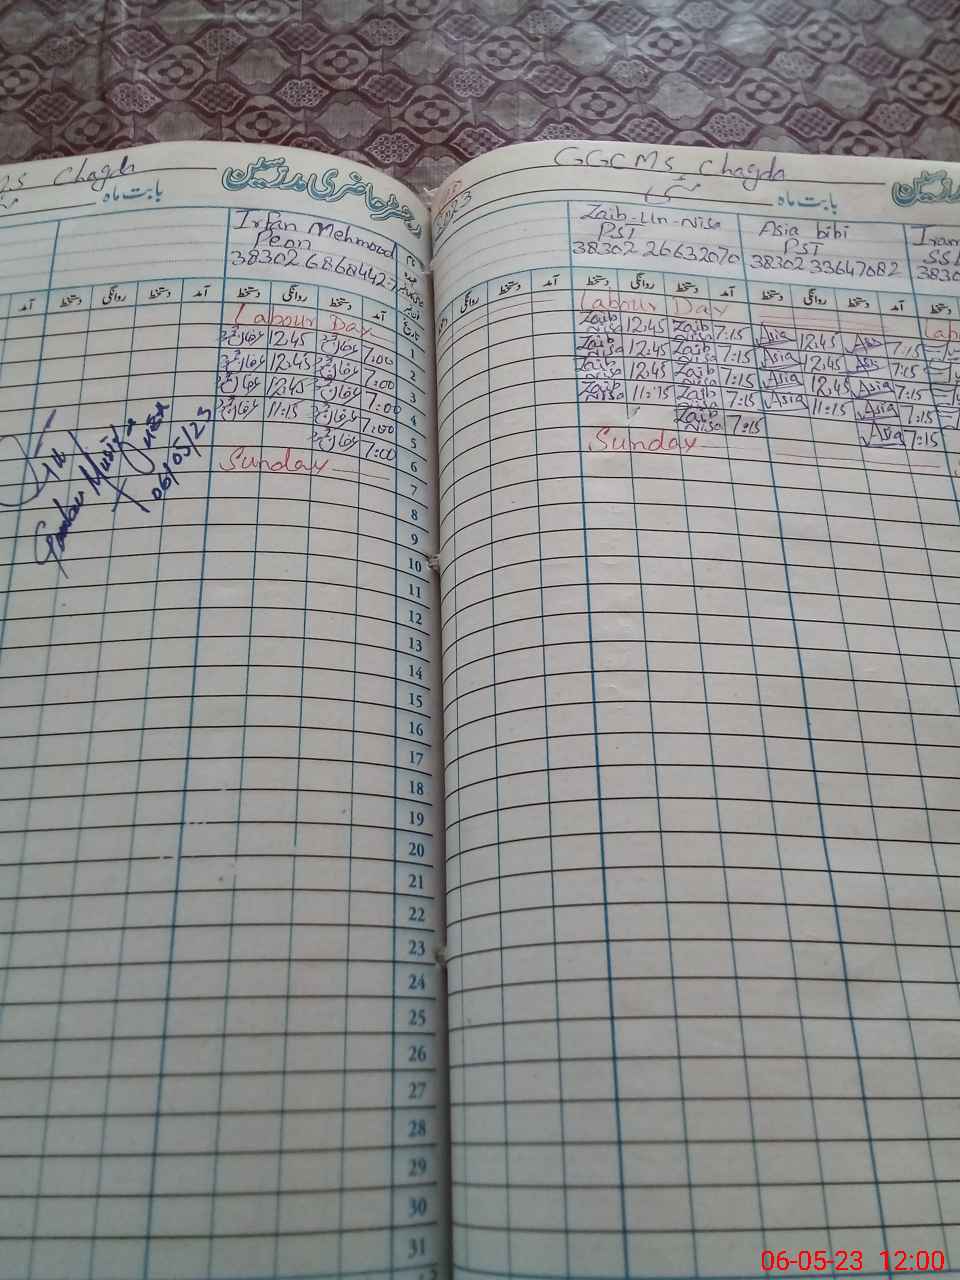 Chagda
رجسٹر حاضری مدرسین
بابت ماہ
Irfan Mehmood
Peon
آمد دستخط روانگی دستخط آمد دستخط روانگی دستخط آمد
Labour Day
12:45 7:00
12:45 7:00
12:45 7:00
11:15 7:00
7:00
Sunday
06/05/23
1
2
3
4
5
6
7
8
9
10
11
12
13
14
15
16
17
18
19
20
21
22
23
24
25
26
27
28
29
30
31
GGCMS, Chagda
بابت ماہ
مئی
2023
Zaib-Un-Nisa
PST
38302 26632070
Asia bibi
PST
38302 33647082
روانگی دستخط آمد دستخط روانگی دستخط آمد دستخط روانگی دستخط آمد
Labour Day
Zaib Nisa 12:45 Zaib Nisa 7:15 Asia 12:45 Asia 7:15
Zaib Nisa 12:45 Zaib Nisa 7:15 Asia 12:45 Asia 7:15
Zaib Nisa 12:45 Zaib Nisa 7:15 Asia 12:45 Asia 7:15
Zaib Nisa 11:15 Zaib Nisa 7:15 Asia 11:15 Asia 7:15
Zaib Nisa 7:15 Asia 7:15
Sunday
06-05-23 12:00